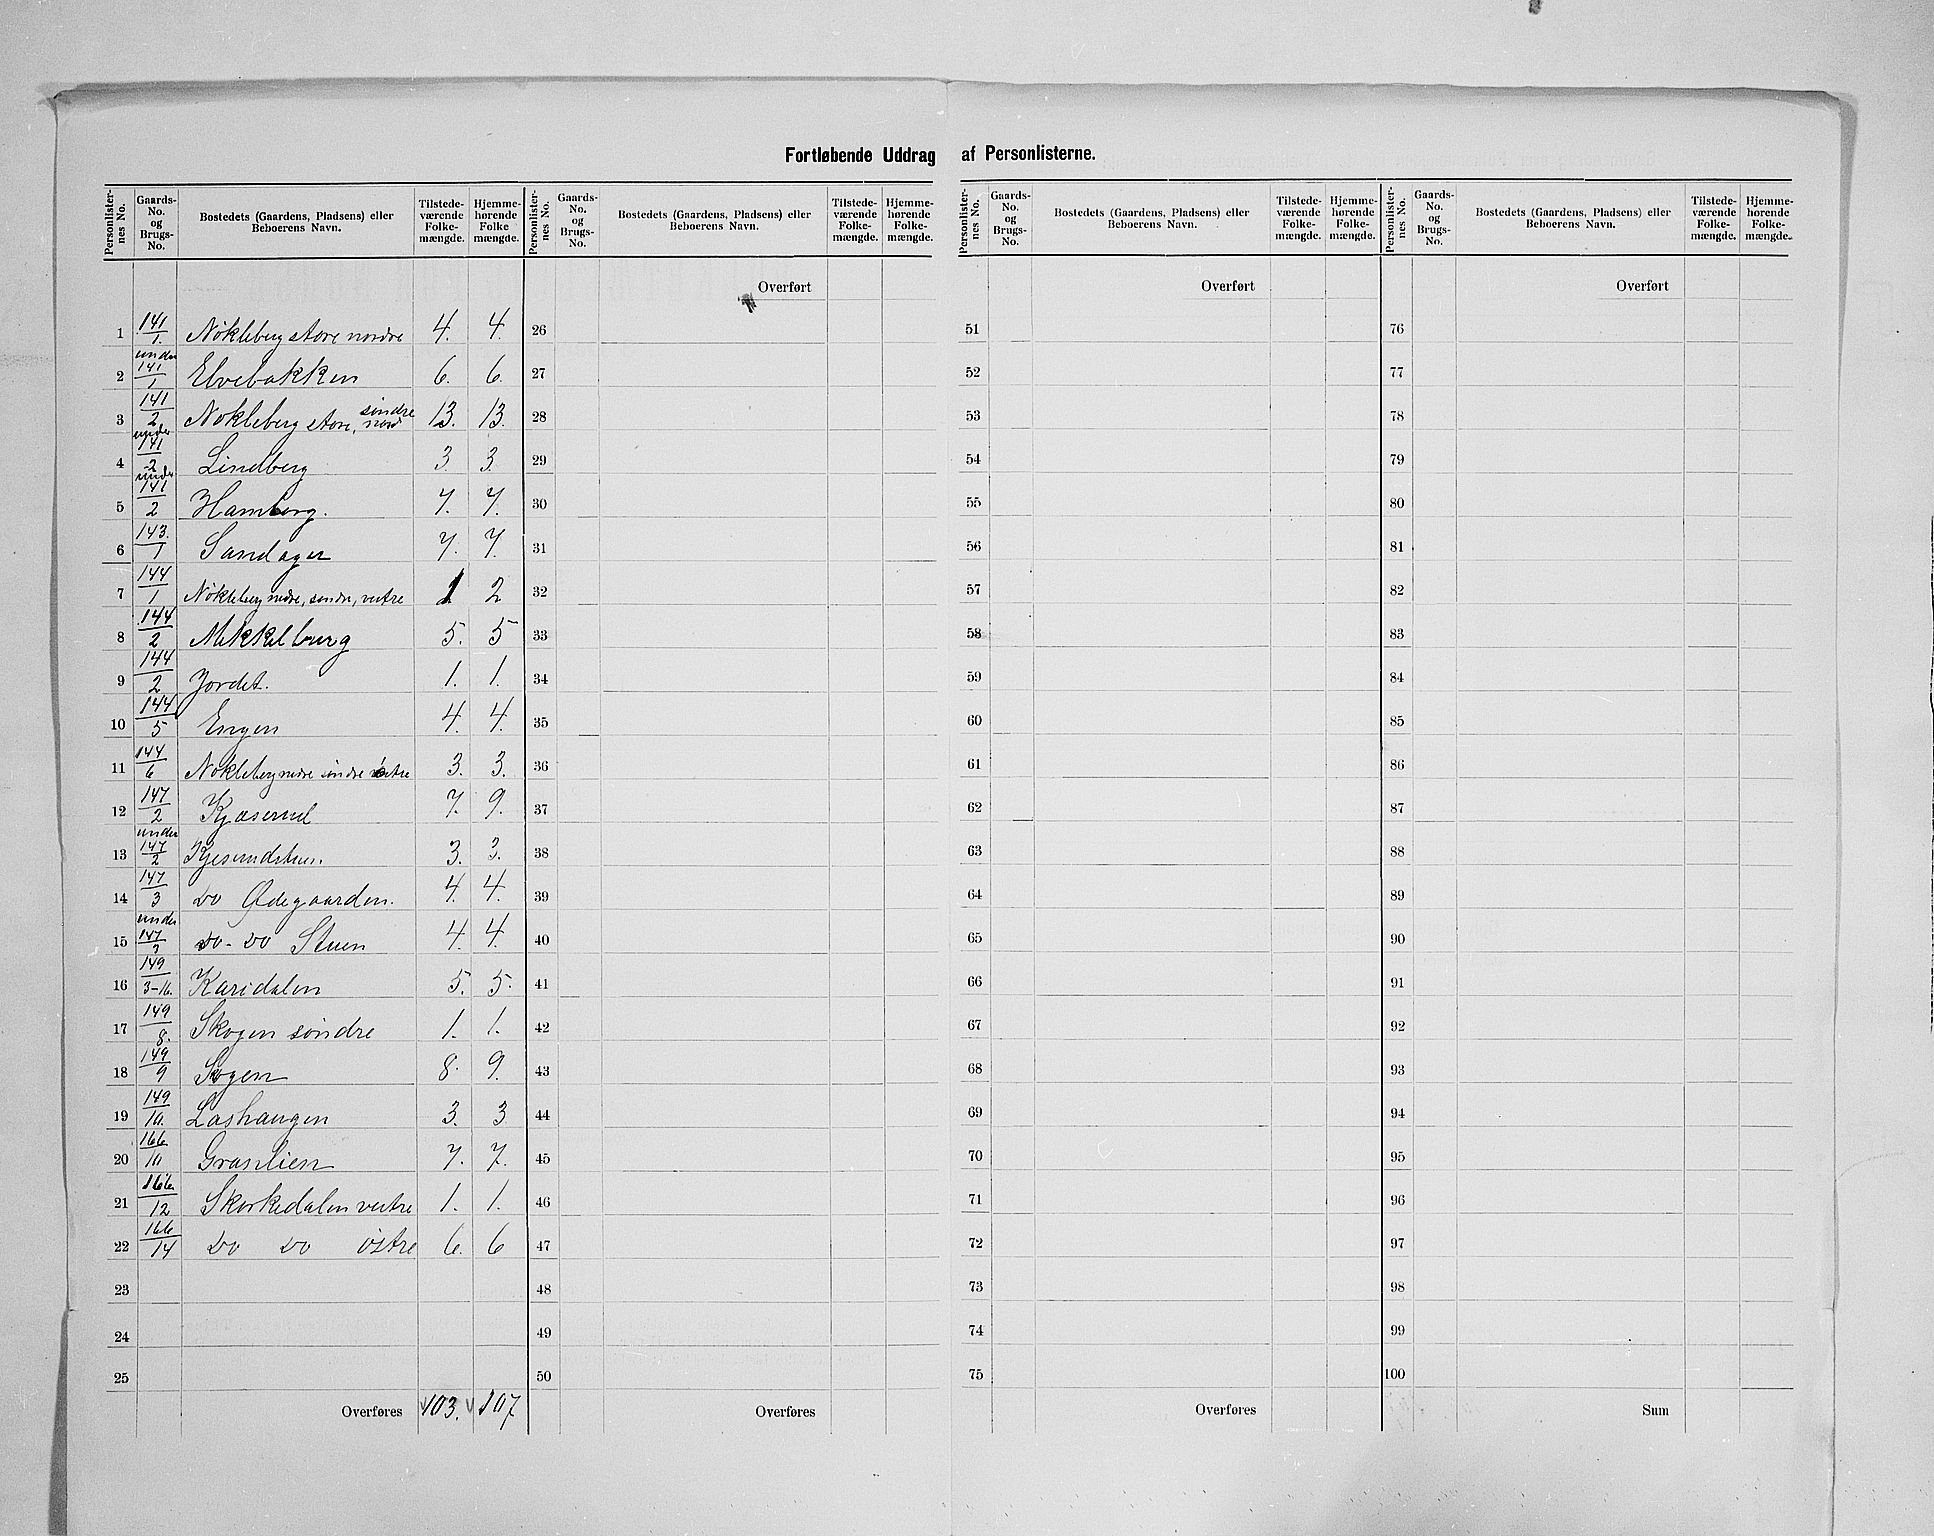 Fortløbende Uddrag af Personlisterne.
Personlisternes No. | Gaards-No. og Brugs-No. | Bostedets (Gaardens, Pladsens) eller Beboerens Navn. | Tilstedeværende Folkemængde. | Hjemmehørende Folkemængde.
1 141/1. Nökleberg store nordre 4. 4.
2 under 141/1 Elvebakken 6. 6.
3 141/2 Nökleberg store, söndre nord 13. 13.
4 under 141/2 Lindberg 3. 3.
5 under 141/2 Hamberg. 7. 7.
6 143./1 Sandager 7. 7.
7 144/1 Nökleberg nedre, söndre, vestre 1 2
8 144/2 Mikkelburg 5. 5
9 144/2 Jordet. 1. 1.
10 144/5 Engen 4. 4.
11 144/6 Nökleberg nedre söndre östre 3. 3.
12 147/2 Kjæserud 7. 9.
13 under 147/2 3. 3.
14 147/3 Do Ødegaarden. 4. 4.
15 under 147/3 Do - Do Stuen 4. 4.
16 149/3-16. Karidalen 5. 5.
17 149/8. Skogen söndre 1. 1.
18 149/9 Skogen 8. 9.
19 149/10. Lashaugen 3. 3
20 166/10 Granlien 7. 7.
21 166/12 Skorkedalen vestre 1. 1.
22 166/14 Do Do östre 6. 6
23
24
25
Overføres 103. 107
Personlisternes No. | Gaards-No. og Brugs-No. | Bostedets (Gaardens, Pladsens) eller Beboerens Navn. | Tilstedeværende Folkemængde. | Hjemmehørende Folkemængde.
Overført
26
27
28
29
30
31
32
33
34
35
36
37
38
39
40
41
42
43
44
45
46
47
48
49
50
Overføres
Personlisternes No. | Gaards-No. og Brugs-No. | Bostedets (Gaardens, Pladsens) eller Beboerens Navn. | Tilstedeværende Folkemængde. | Hjemmehørende Folkemængde.
Overført
51
52
53
54
55
56
57
58
59
60
61
62
63
64
65
66
67
68
69
70
71
72
73
74
75
Overføres
Personlisternes No. | Gaards-No. og Brugs-No. | Bostedets (Gaardens, Pladsens) eller Beboerens Navn. | Tilstedeværende Folkemængde. | Hjemmehørende Folkemængde.
Overført
76
77
78
79
80
81
82
83
84
85
86
87
88
89
90
91
92
93
94
95
96
97
98
99
100
Sum